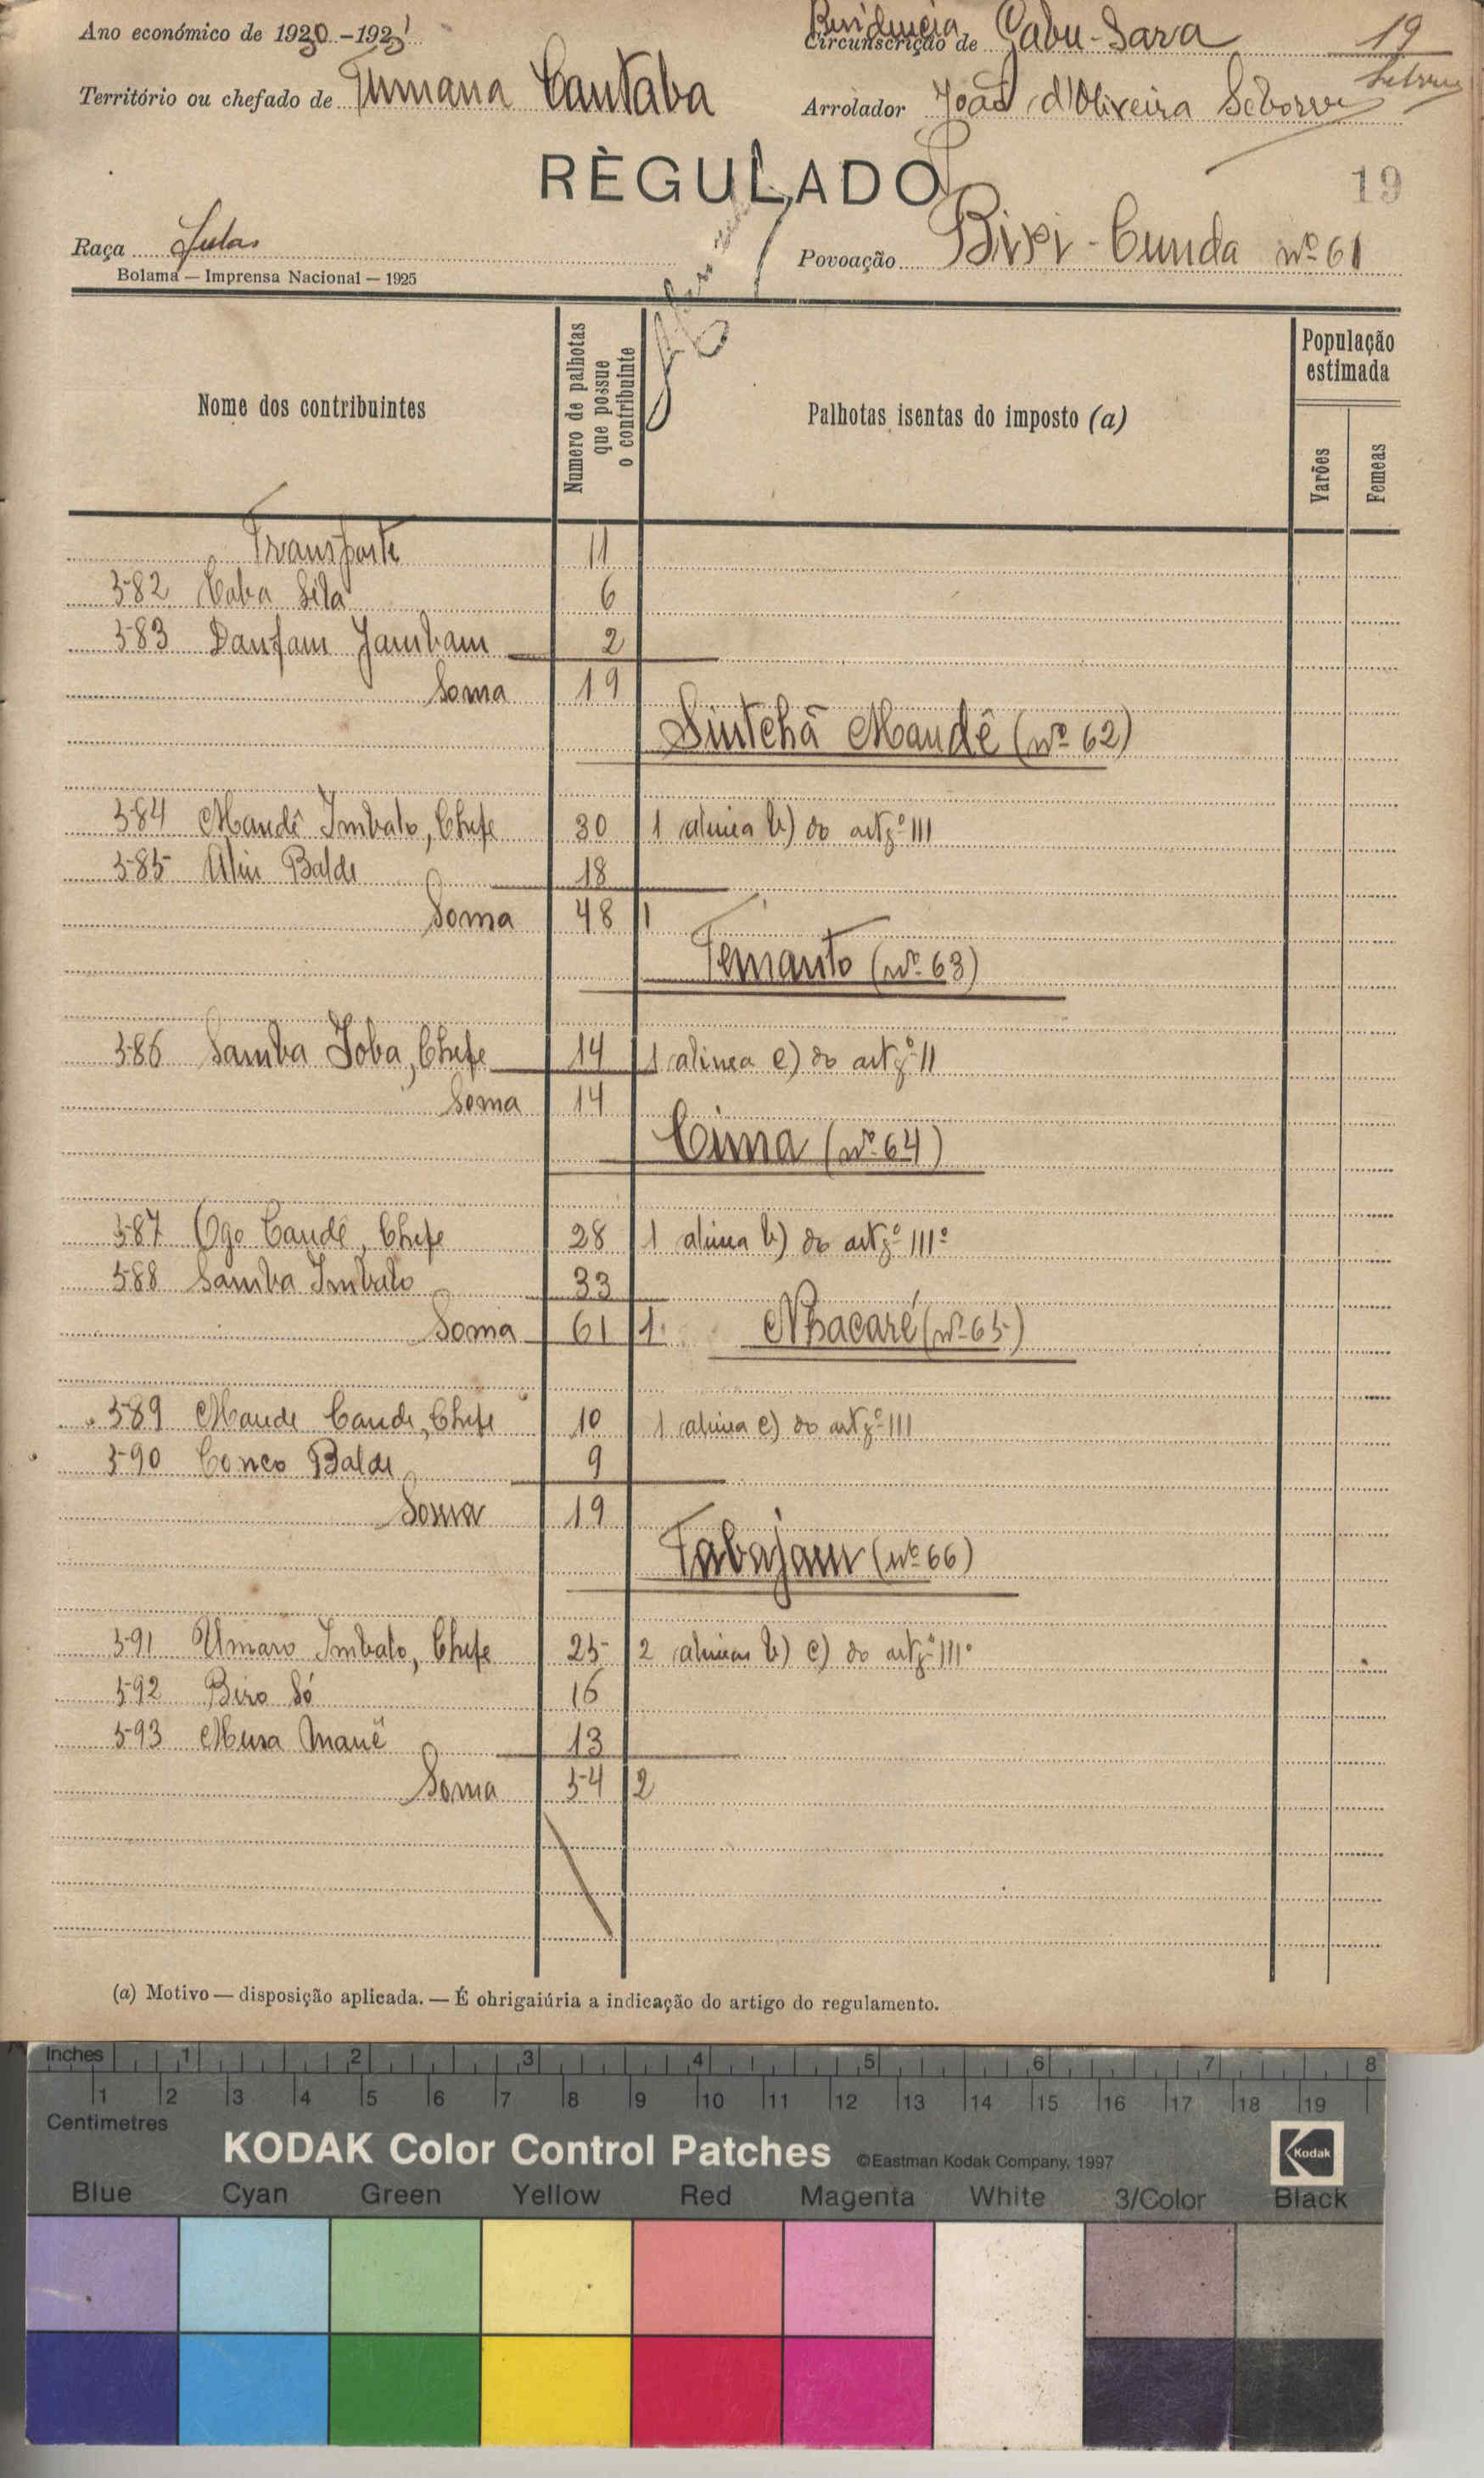 Ano económico de 1930-1931
Residencia Circunscrição de Gabu-Sara
19
Território ou chefado de Tumana Cantaba
Arrolador João d'Oliveira
RÈGULADO
19
Raça Fulas
Povoação Bixi-Cunda nº 61
Bolama — Imprensa Nacional — 1925
Nome dos contribuintes
Numero de palhotas que possue o contribuinte
Palhotas isentas do imposto (a)
População estimada
Varões
Femeas
Transporte 11
582 Caba Sila 6
583 Danfam Jambam 2
Soma 19
Sintchã Mandê (nº 62)
584 Mandê Imbalo, Chefe 30 1 alinea b) do artgº III
585 Aliu Balde 18
Soma 48 1
Temanto (nº 63)
586 Samba Joba, Chefe 14 1 alinea e) do artgº II
Soma 14
Cima (nº 64)
587 Ogo Candê, Chefe 28 1 alinea b) do artgº IIIº
588 Samba Imbalo 33
Soma 61 1
Nhacaré (nº 65)
589 Mande Cande, Chefe 10 1 alinea e) do artgº III
590 Conco Balde 9
Soma 19
Tabajam (nº 66)
591 Umaro Imbalo, Chefe 25 2 alineas b) e) do artgº IIIº
592 Biro Só 16
593 Musa Mané 13
Soma 54 2
(a) Motivo — disposição aplicada. — É ohrigaiúria a indicação do artigo do regulamento.
Inches 1 2 3 4 5 6 7 8
1 2 3 4 5 6 7 8 9 10 11 12 13 14 15 16 17 18 19
Centimetres
KODAK Color Control Patches ©Eastman Kodak Company, 1997
Kodak
Blue Cyan Green Yellow Red Magenta White 3/Color Black